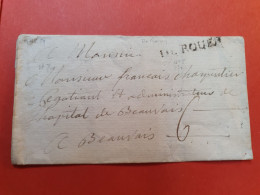 DE ROUEN
A Monsieur
Monsieur françois Charpentier
négotiant & administrateur de
hopital de Beauvais
A Beauvais 6